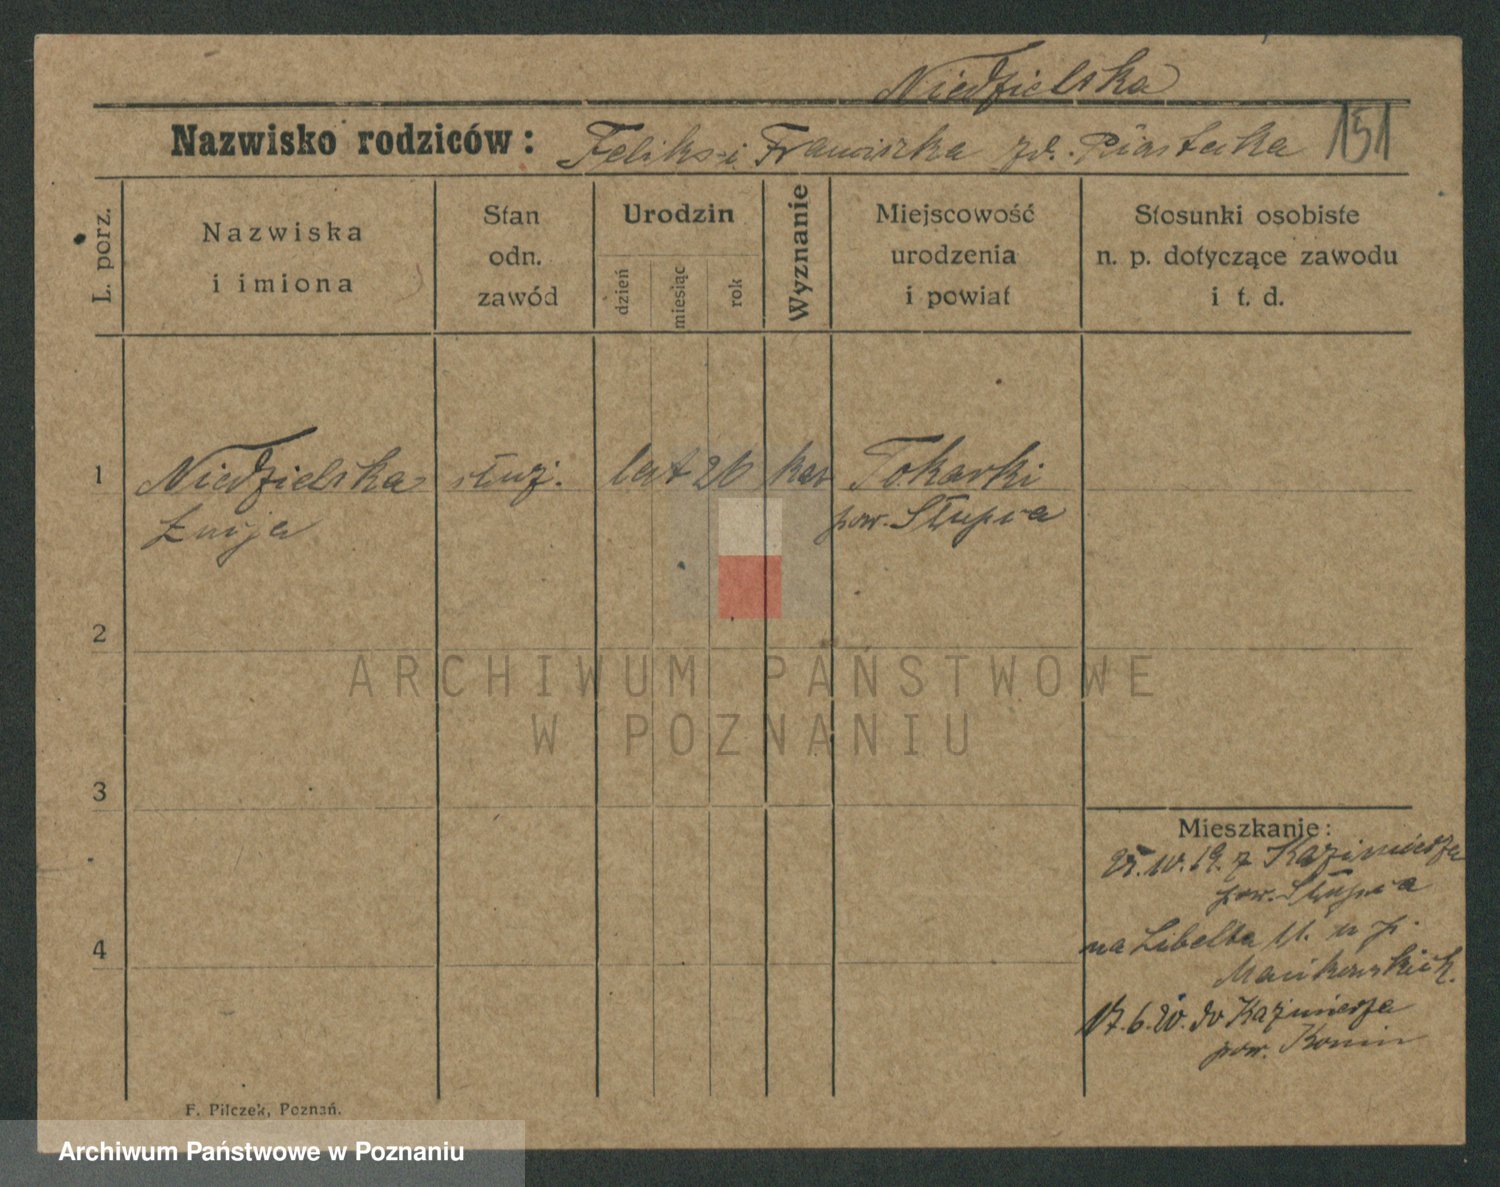 Niedzielska
Nazwisko rodziców: Feliks i Franciszka zd. Piastecka 151
L. porz.
Nazwiska
i imiona
Stan
odn.
zawód
Urodzin
dzień
miesiąc
rok
Wyznanie
Miejscowość
urodzenia
i powiat
Stosunki osobiste
n. p. dotyczące zawodu
i t. d.
1 Niedzielska służ. lat 26 kat Tokarki
Łucja pow. Słupca
2
ARCHIWUM PAŃSTWOWE
W POZNANIU
3
Mieszkanie:
25.10.19. z Kazimierza
pow. Słupca
na Libelta 11.
4
17.6.20. do Kazimierza
pow. Konin
F. Pilczek, Poznań.
Archiwum Państwowe w Poznaniu